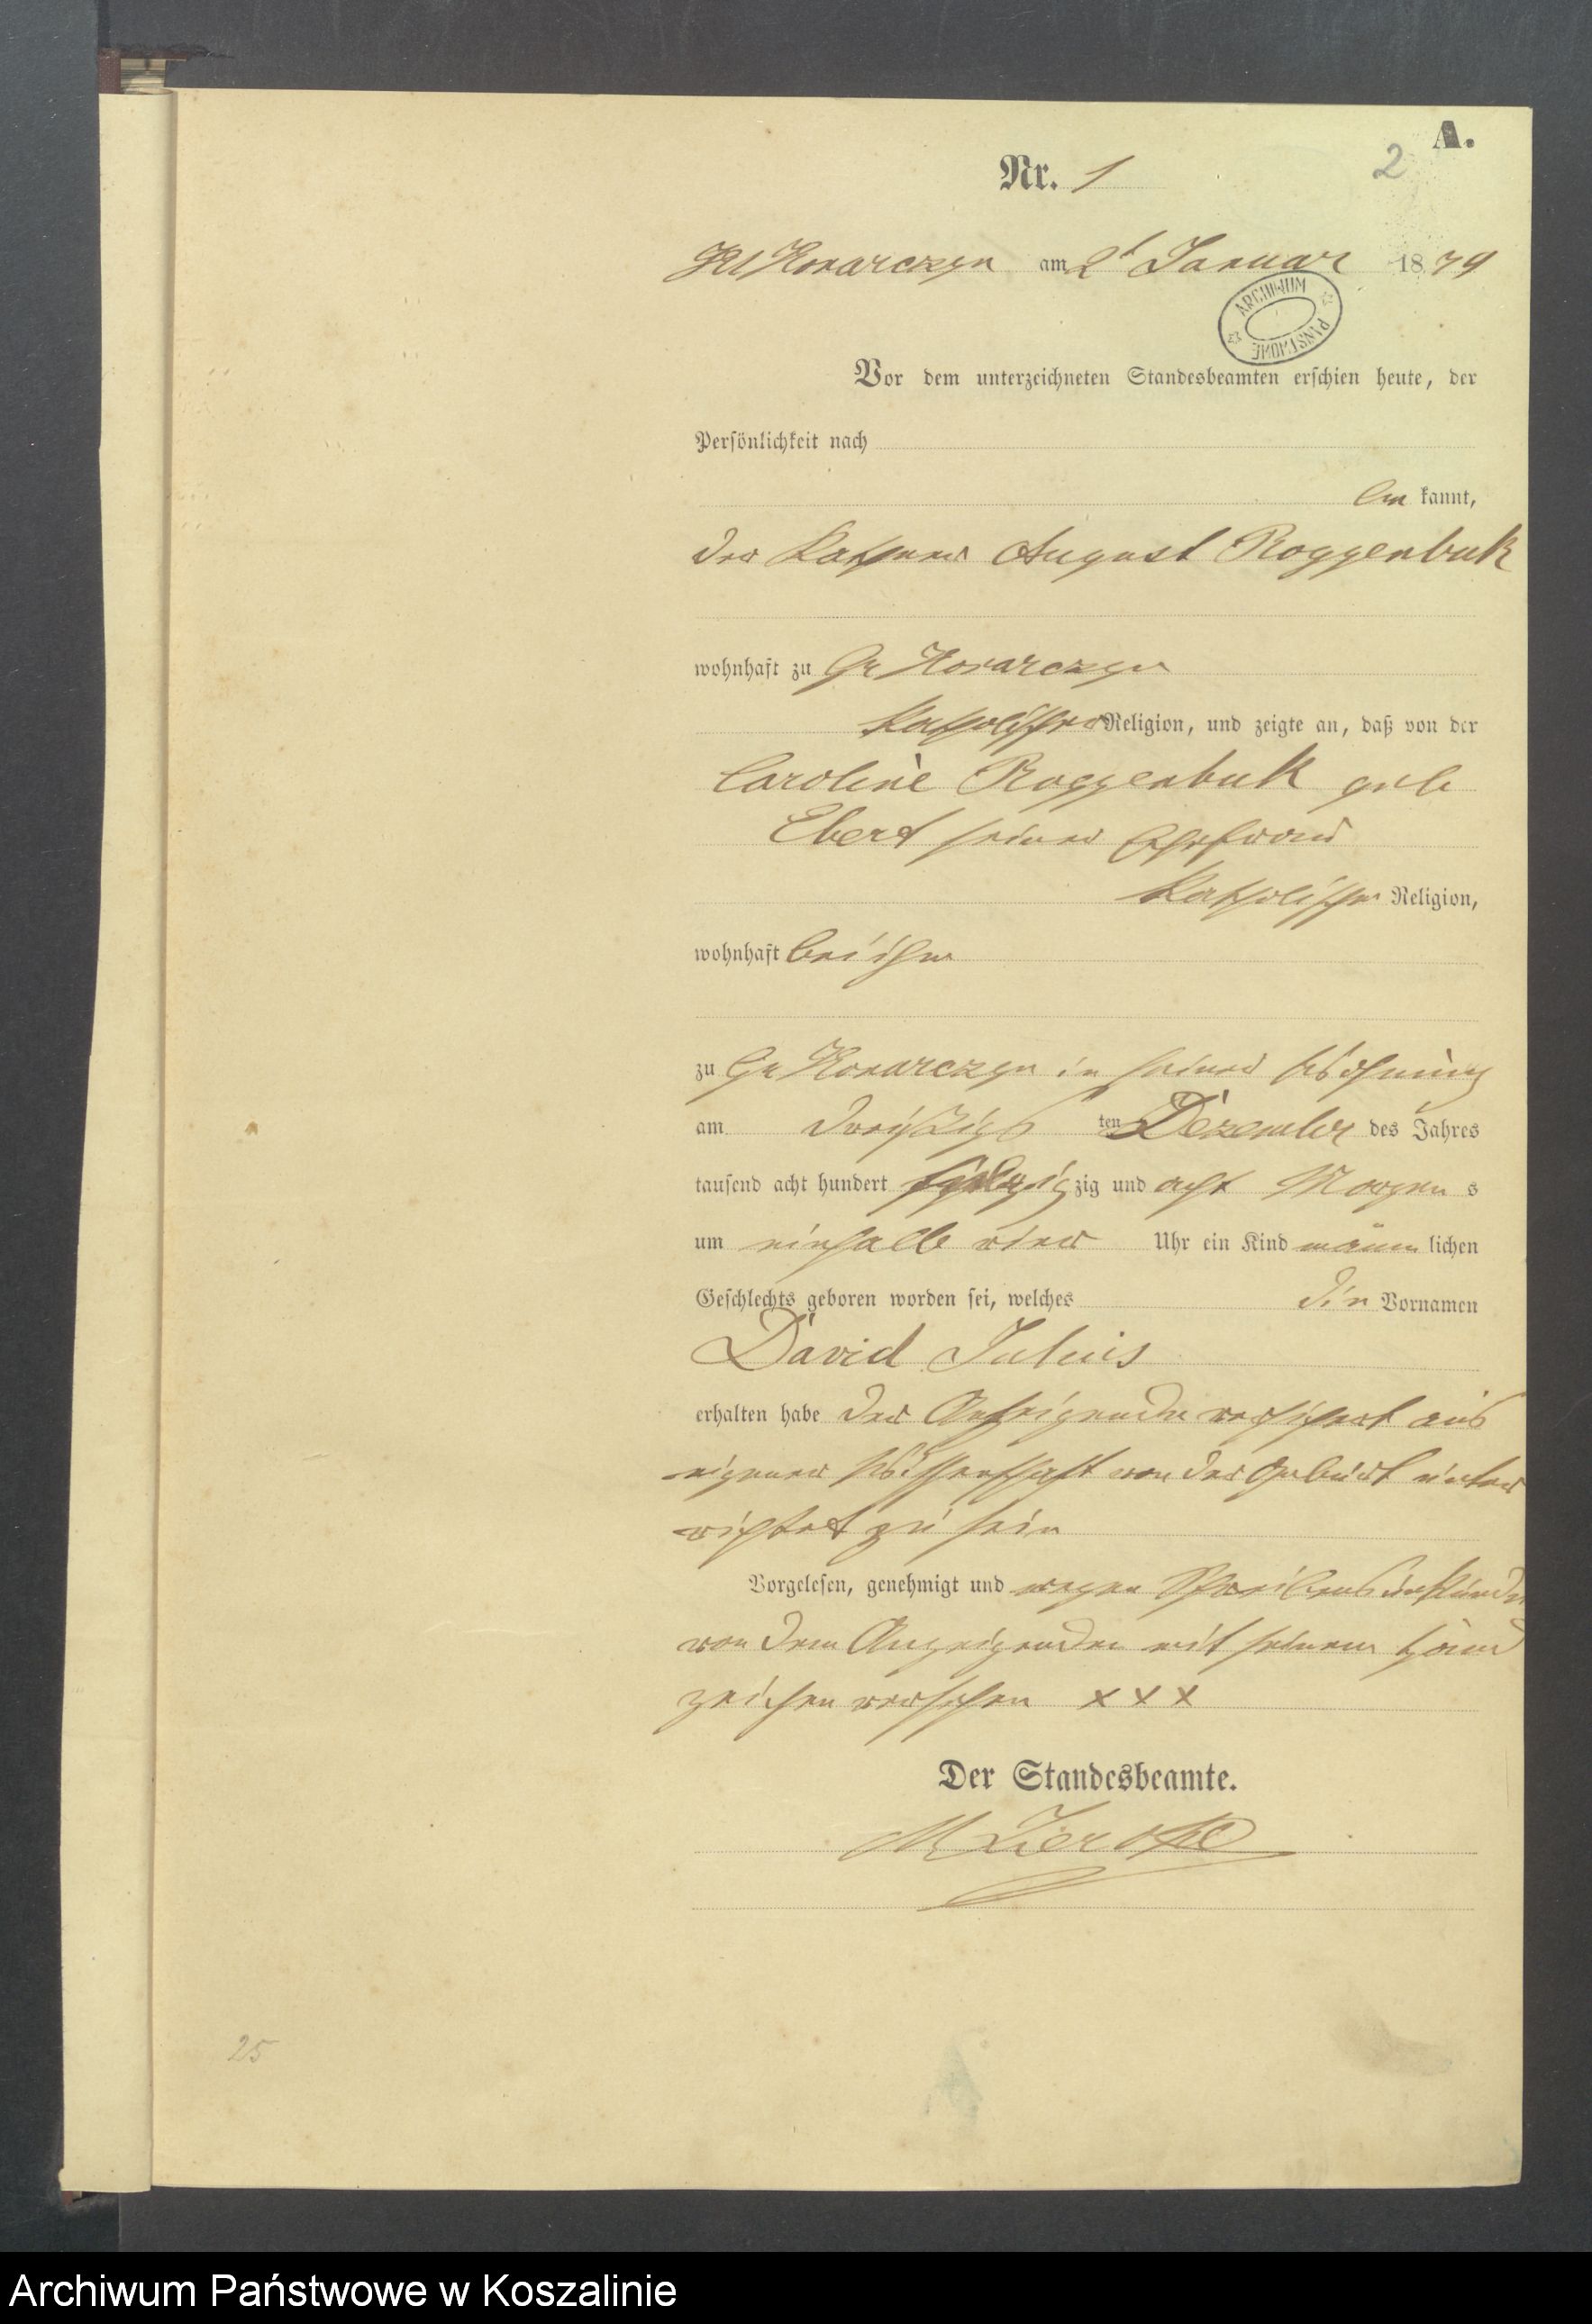 A.
2
Nr. 1
Kl Konarczyn am 2t Januar 1879
ARCHIWUM
PAŃSTWOWE
Vor dem unterzeichneten Standesbeamten erschien heute, der
Persönlichkeit nach
be kannt,
der Käthner August Roggenbuk
wohnhaft zu Gr Konarczyn
katholischer Religion, und zeigte an, daß von der
Caroline Roggenbuk geb
Ebert seiner Ehefrau
katholischer Religion,
wohnhaft bei ihm
zu Gr Konarczyn in seiner Wohnung
am dreißigs ten Dezember des Jahres
tausend acht hundert siebzig zig und acht Morgen s
um einhalb vier Uhr ein Kind männ lichen
Geschlechts geboren worden sei, welches die Vornamen
David Julius
erhalten habe der Anzeigende versichert aus
eigener Wissenschaft von der Geburt unter
richtet zu sein
Vorgelesen, genehmigt und wegen Schreibensunkunde
von dem Anzeigenden mit seinem Hand
zeichen versehen x x x
Der Standesbeamte.
25
Archiwum Państwowe w Koszalinie